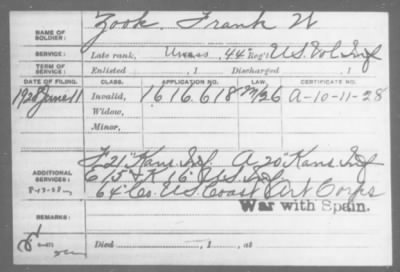 NAME OF SOLDIER: Zook, Frank W
SERVICE: Late rank, Unass 44" Reg't U.S. Vol Inf
TERM OF SERVICE: Enlisted , 1 Discharged , 1
DATE OF FILING. CLASS. APPLICATION NO. LAW. CERTIFICATE NO.
1928 June 11 Invalid, 1616618 A-10-11-28
Widow,
Minor,
ADDITIONAL SERVICES: F 21" Kans Inf. A, 20" Kans Inf
& K 16" U.S. Inf
P-13-28
64" Co. U.S. Coast Art Corps
War with Spain.
REMARKS:
Died , 1 , at